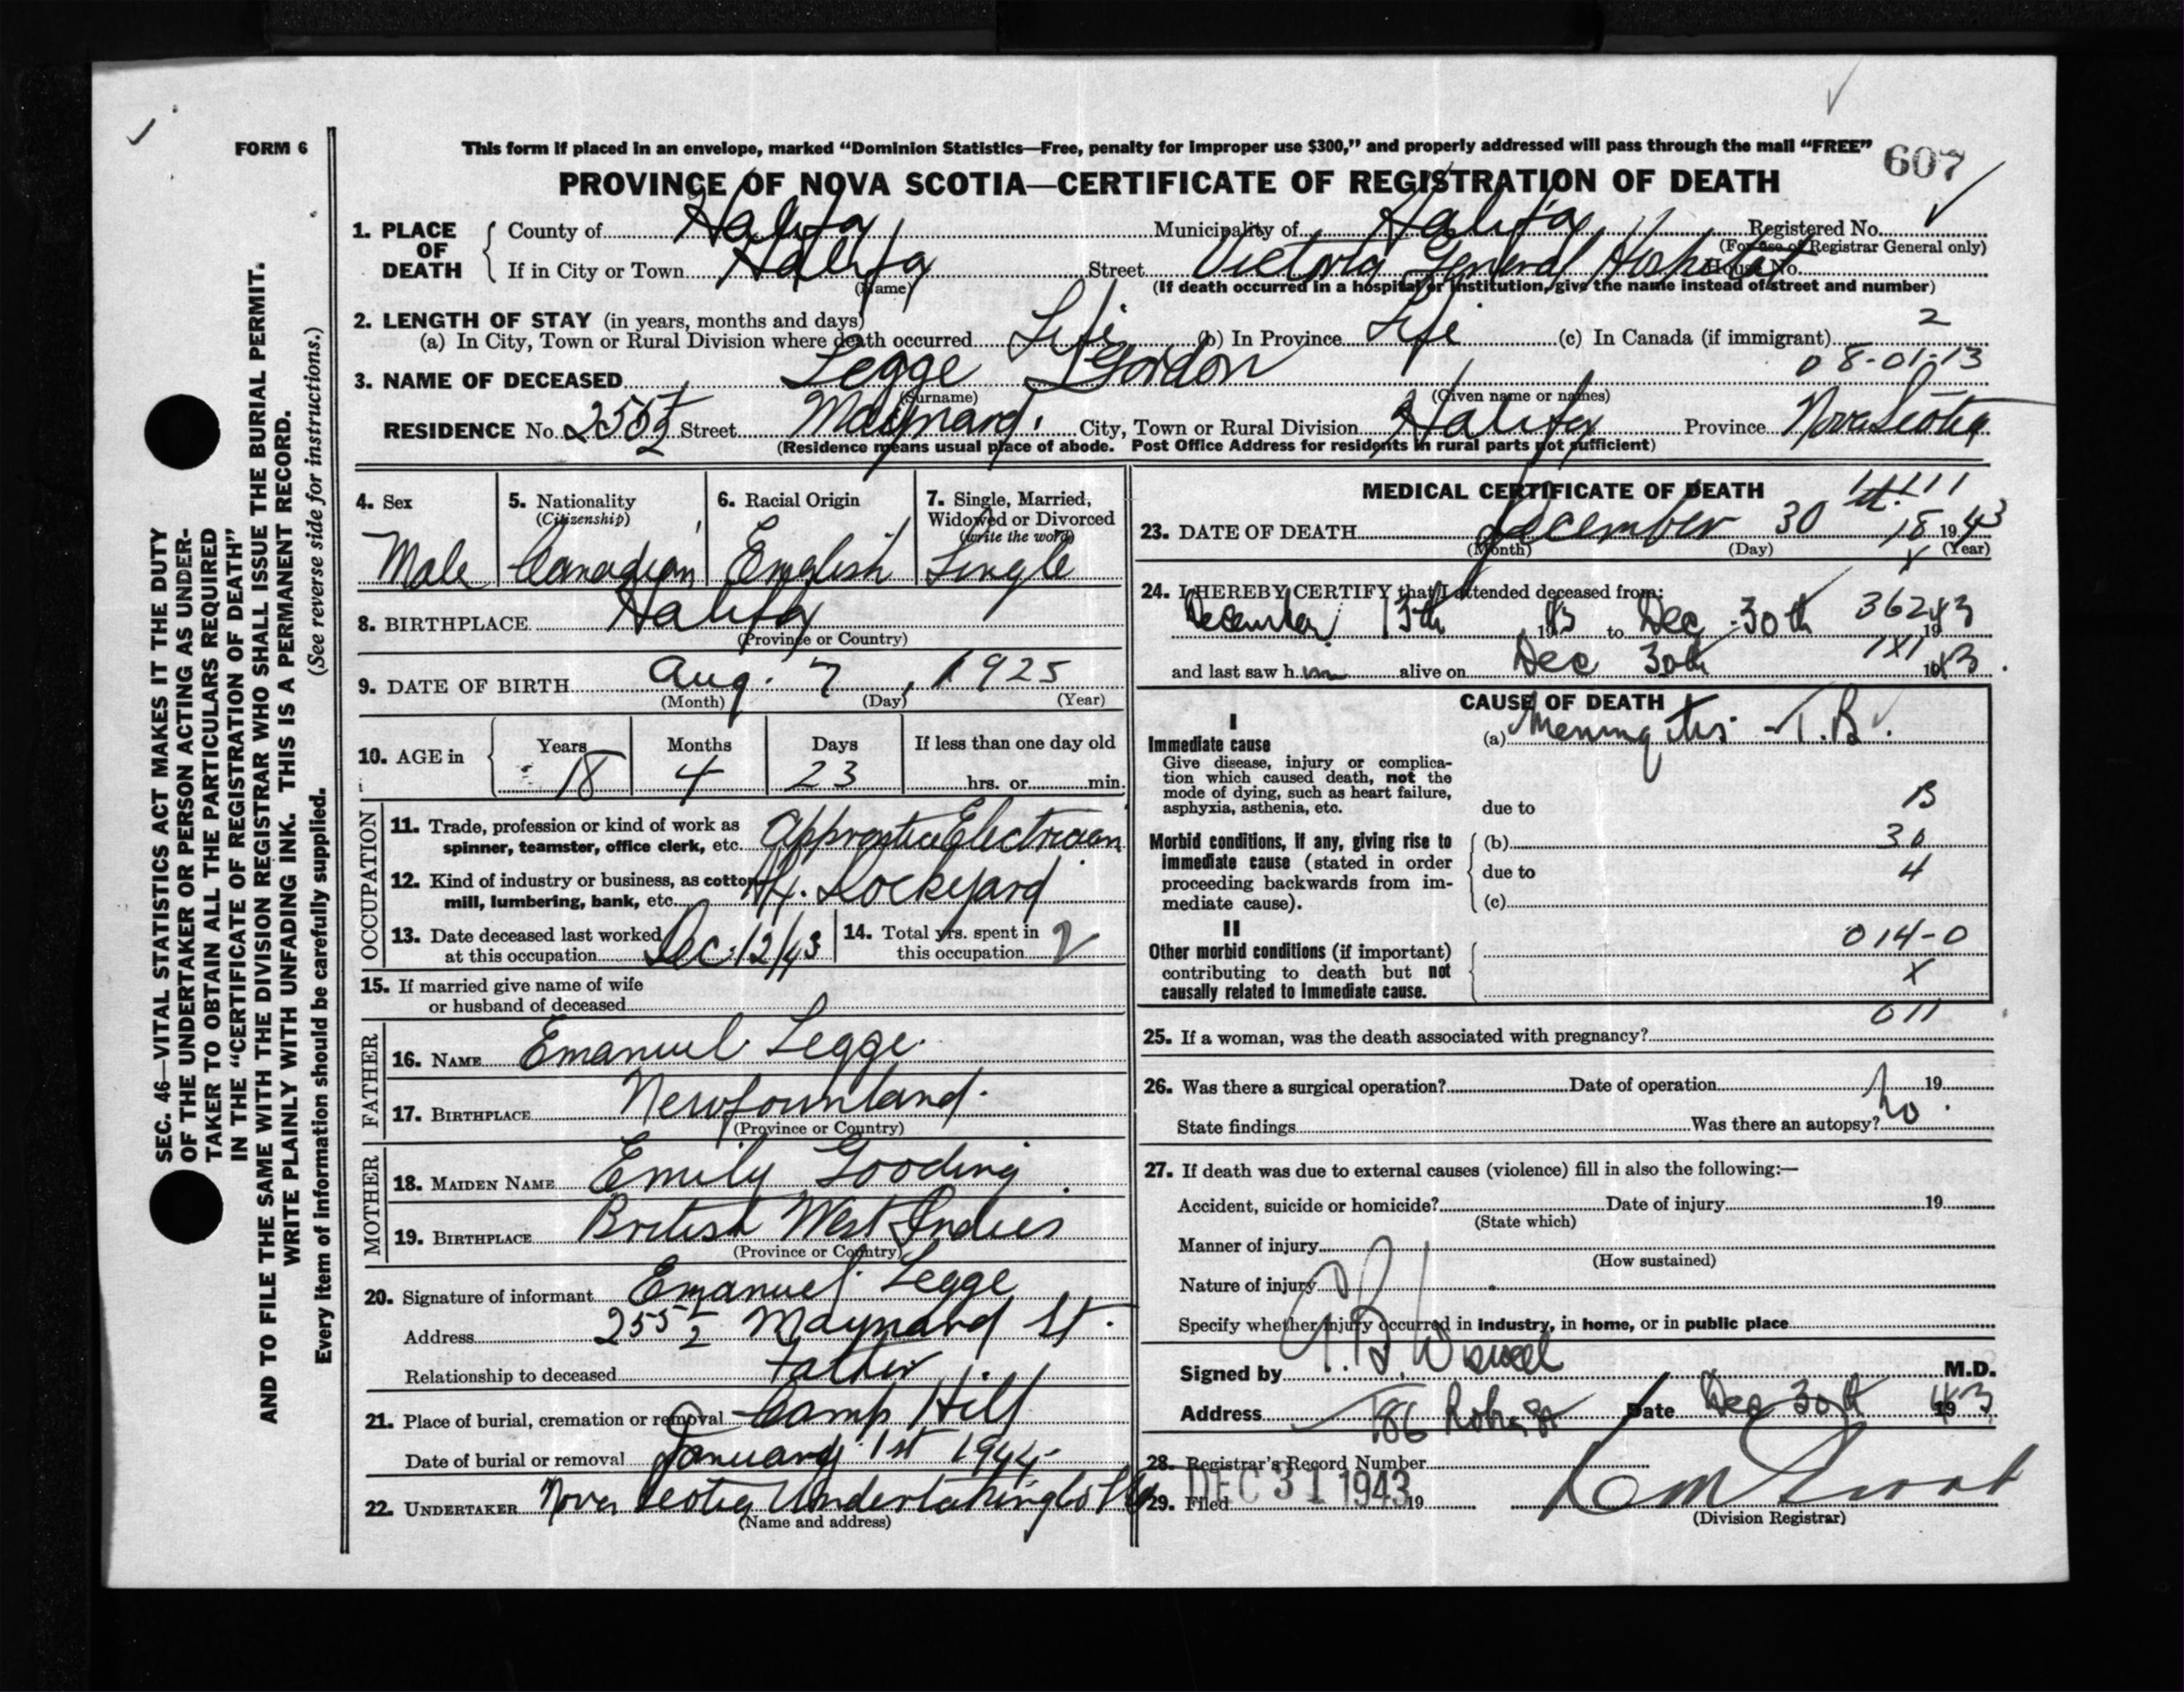 FORM 6
This form if placed in an envelope, marked “Dominion Statistics—Free, penalty for improper use $300,” and properly addressed will pass through the mail “FREE”
607
PROVINCE OF NOVA SCOTIA—CERTIFICATE OF REGISTRATION OF DEATH
1. PLACE OF DEATH
County of Halifax Municipality of Halifax Registered No.
(For use of Registrar General only)
If in City or Town Halifax Street Victoria General Hospital House No.
(Name) (If death occurred in a hospital or institution, give the name instead of street and number)
2. LENGTH OF STAY (in years, months and days)
(a) In City, Town or Rural Division where death occurred Life (b) In Province Life (c) In Canada (if immigrant) 2
08-01-13
3. NAME OF DECEASED Legge Gordon
(Surname) (Given name or names)
RESIDENCE No. 255½ Street Maynard City, Town or Rural Division Halifax Province Nova Scotia
(Residence means usual place of abode. Post Office Address for residents in rural parts not sufficient)
4. Sex
Male
5. Nationality
(Citizenship)
Canadian
6. Racial Origin
English
7. Single, Married,
Widowed or Divorced
(write the word)
Single
8. BIRTHPLACE Halifax
(Province or Country)
9. DATE OF BIRTH Aug. 7, 1925
(Month) (Day) (Year)
10. AGE in
Years Months Days If less than one day old
18 4 23 hrs. or min.
OCCUPATION
11. Trade, profession or kind of work as
spinner, teamster, office clerk, etc. Apprentice Electrician
12. Kind of industry or business, as cotton
mill, lumbering, bank, etc. Hfx. Dockyard
13. Date deceased last worked
at this occupation Dec. 12/43
14. Total yrs. spent in
this occupation 2
15. If married give name of wife
or husband of deceased
FATHER
16. NAME Emanuel Legge.
17. BIRTHPLACE Newfounland.
(Province or Country)
MOTHER
18. MAIDEN NAME Emily Gooding.
19. BIRTHPLACE British West Indies
(Province or Country)
20. Signature of informant Emanuel Legge
Address 255½ Maynard St.
Relationship to deceased Father.
21. Place of burial, cremation or removal Camp Hill
Date of burial or removal January 1st 1944-
22. UNDERTAKER Nova Scotia Undertaking Co
(Name and address)
MEDICAL CERTIFICATE OF DEATH
11111
23. DATE OF DEATH December 30 th. 18 1943
(Month) (Day) (Year)
X
24. I HEREBY CERTIFY that I attended deceased from:
36243
December 13th 1943 to Dec - 30th 1943
1X1
and last saw him alive on Dec 30th 1943.
CAUSE OF DEATH
I
Immediate cause
Give disease, injury or complica-
tion which caused death, not the
mode of dying, such as heart failure,
asphyxia, asthenia, etc.
(a) Meningitis - T.B.
due to
13
Morbid conditions, if any, giving rise to
immediate cause (stated in order
proceeding backwards from im-
mediate cause).
(b) 30
due to 4
(c)
II
Other morbid conditions (if important)
contributing to death but not
causally related to immediate cause.
014-0
X
011
25. If a woman, was the death associated with pregnancy?
26. Was there a surgical operation? Date of operation 19
State findings Was there an autopsy? no.
27. If death was due to external causes (violence) fill in also the following:—
Accident, suicide or homicide? Date of injury 19
(State which)
Manner of injury
(How sustained)
Nature of injury
Specify whether injury occurred in industry, in home, or in public place
Signed by Wiswell M.D.
Address 186 Robie St Date Dec 30th 1943
28. Registrar's Record Number
29. Filed DEC 31 1943 19
(Division Registrar)
SEC. 46—VITAL STATISTICS ACT MAKES IT THE DUTY
OF THE UNDERTAKER OR PERSON ACTING AS UNDER-
TAKER TO OBTAIN ALL THE PARTICULARS REQUIRED
IN THE “CERTIFICATE OF REGISTRATION OF DEATH”
AND TO FILE THE SAME WITH THE DIVISION REGISTRAR WHO SHALL ISSUE THE BURIAL PERMIT.
WRITE PLAINLY WITH UNFADING INK. THIS IS A PERMANENT RECORD.
Every item of information should be carefully supplied. (See reverse side for instructions.)